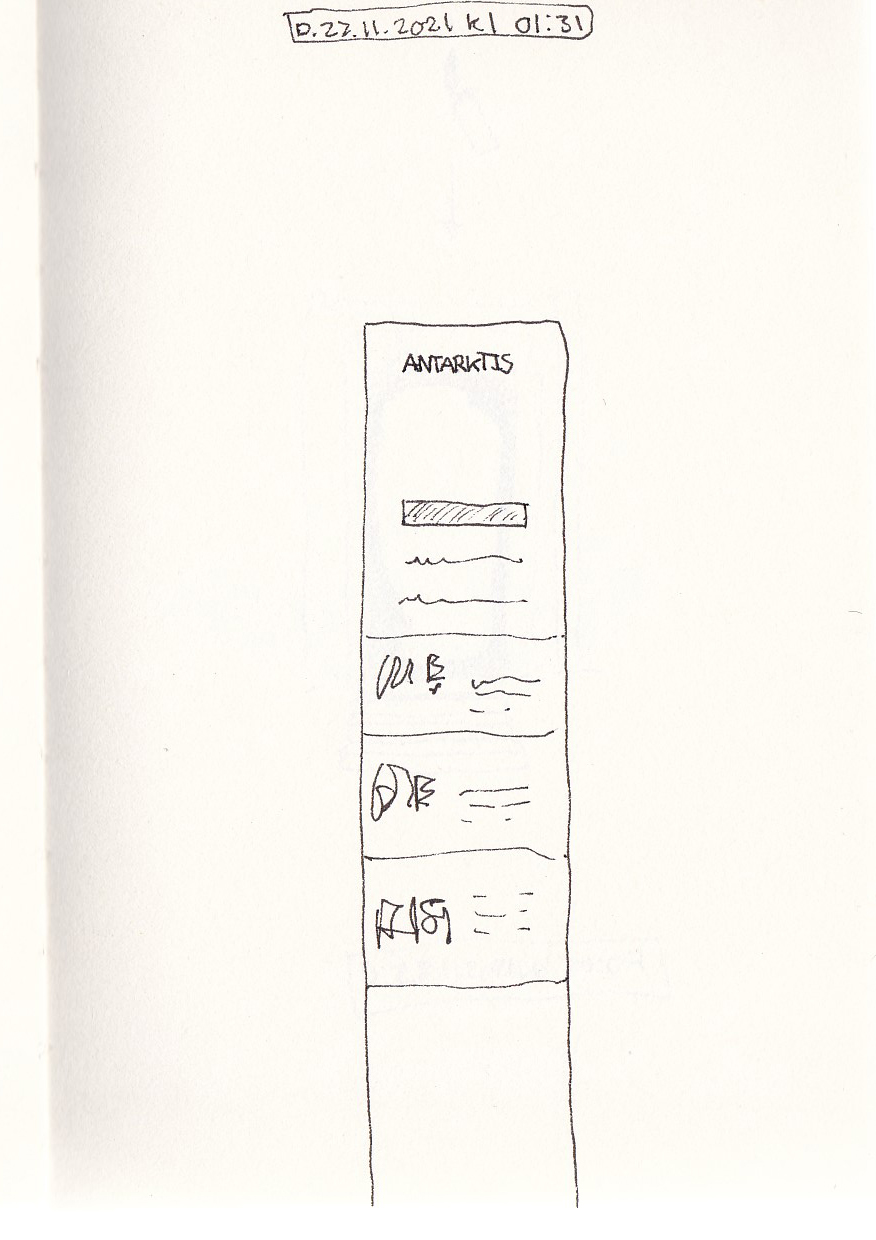 D.22.11.2021 kl 01:31
ANTARKTIS